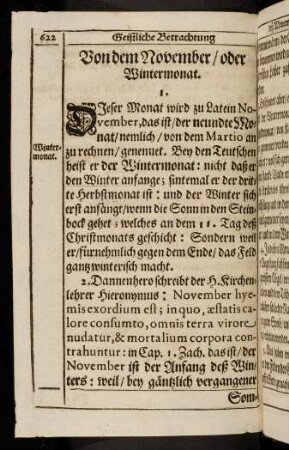 622
Geistliche Betrachtung
Von dem November / oder
Wintermonat.
I.
DIeser Monat wird zu Latein No-
vember, das ist / der neundte Mo-
nat / nemlich / von dem Martio an
zu rechnen / genennet. Bey den Teutschen
heist er der Wintermonat: nicht daß er
den Winter anfange; sintemal er der drit-
te Herbstmonat ist: und der Winter sich
erst anfängt / wenn die Sonn in den Stein-
bock gehet; welches an dem 11. Tag deß
Christmonats geschicht: Sondern weil
er / fürnehmlich gegen dem Ende / das Feld
gantz winterisch macht.
Winter-
monat.
2. Dannenhero schreibt der H. Kirchen-
lehrer Hieronymus: November hye-
mis exordium est; in quo, æstatis ca-
lore consumto, omnis terra virore
nudatur, & mortalium corpora con-
trahuntur: in Cap. 1. Zach. das ist / der
November ist der Anfang deß Win-
ters: weil / bey gäntzlich vergangener
Som-